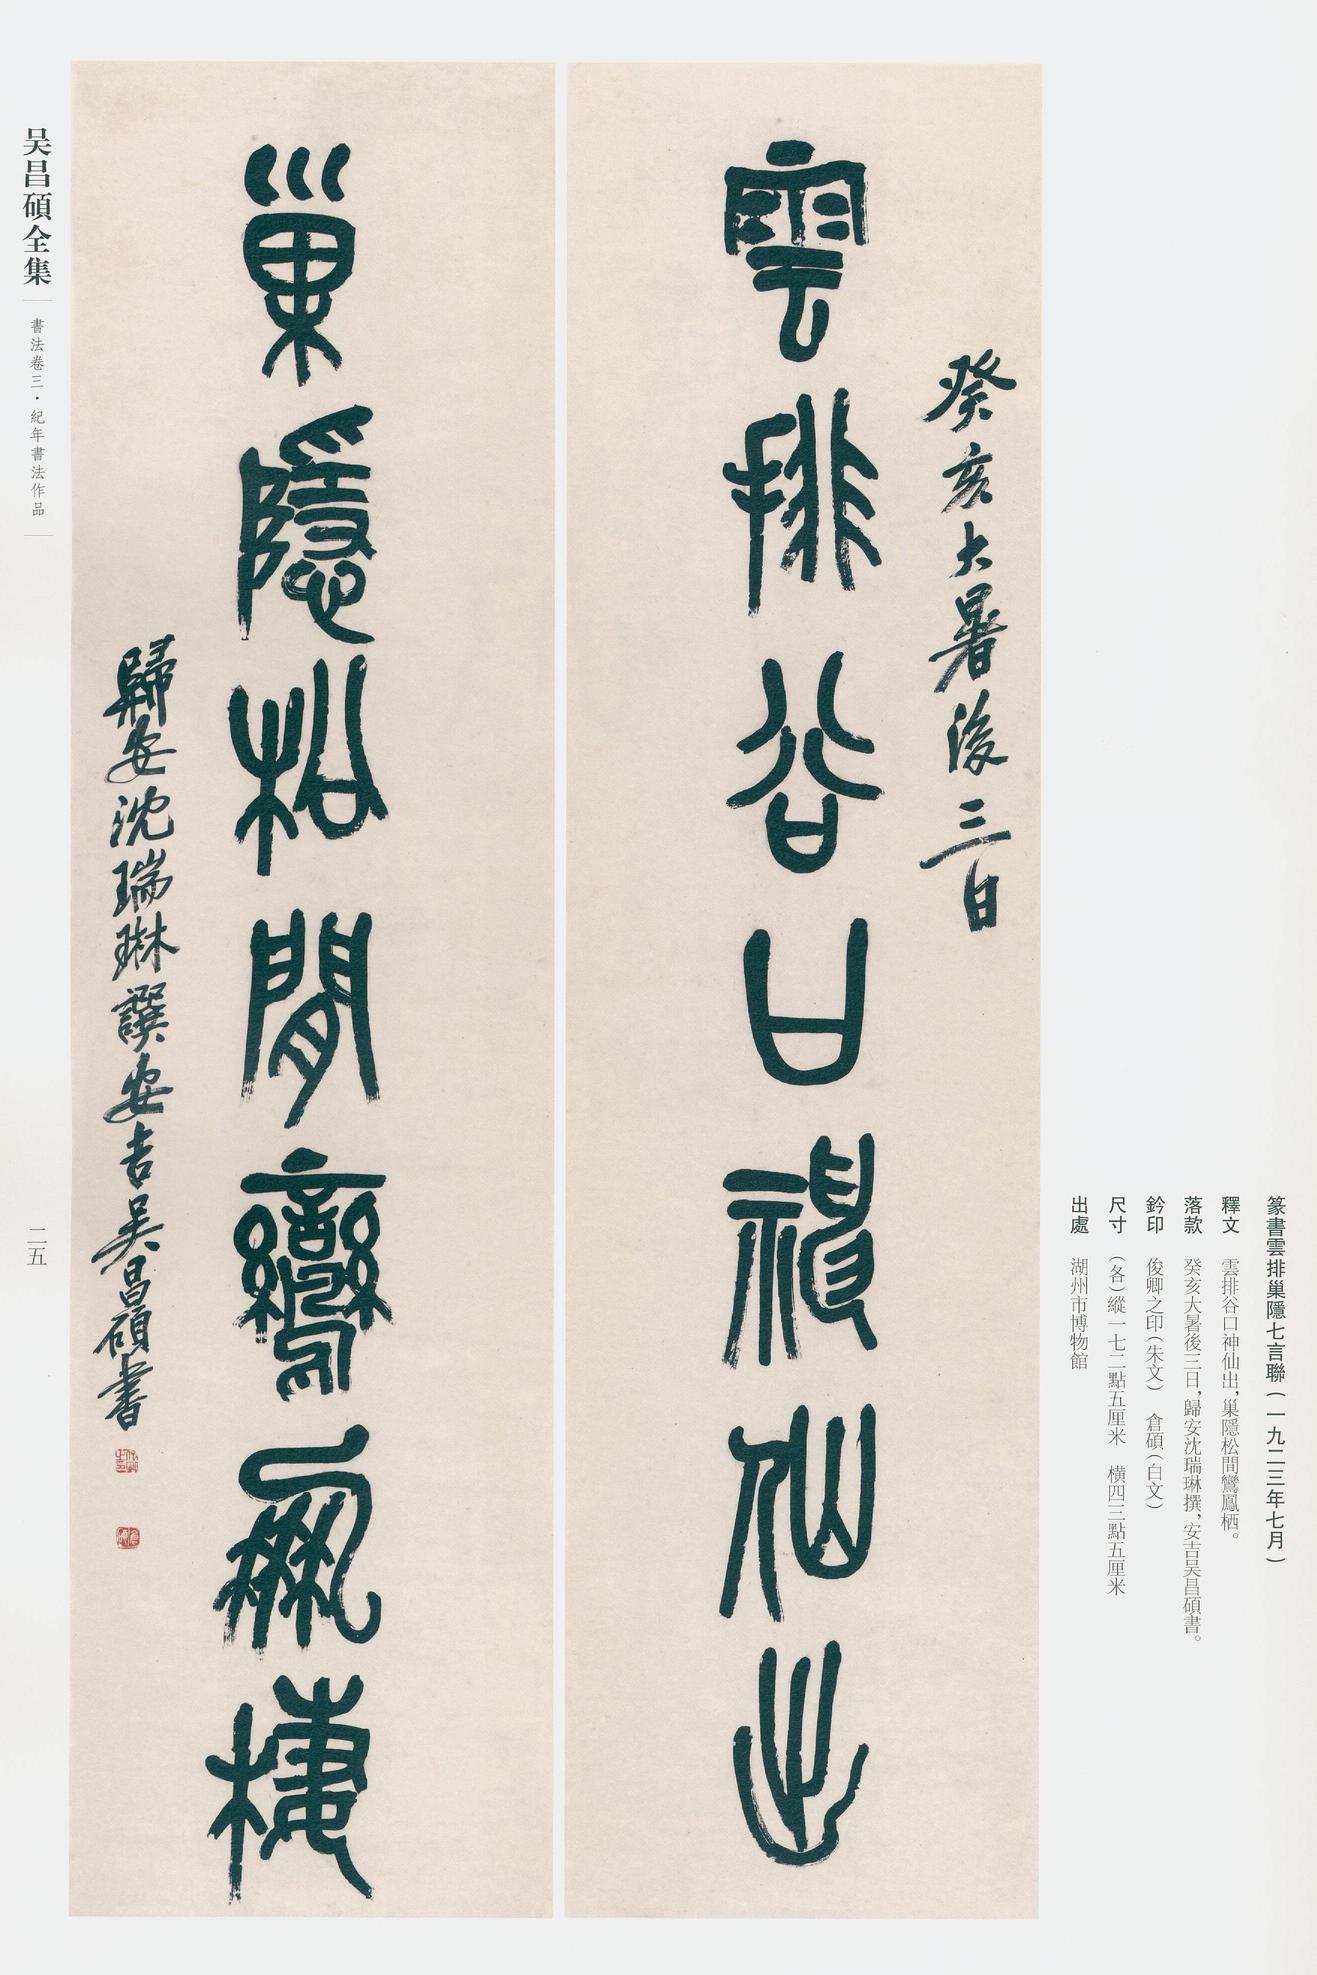 篆書雲排巢隱七言聯(一九二三年七月)
釋文 雲排谷口神仙出,巢隱松間鸞鳳栖。
落款 癸亥大暑後三日,歸安沈瑞琳撰,安吉吴昌碩書。
鈐印 俊卿之印(朱文) 倉碩(白文)
尺寸 (各)縱一七二點五厘米 橫四三點五厘米
出處 湖州市博物館
癸亥大暑後三日
雲排谷口神仙出
巢隱松間鸞鳳棲
歸安沈瑞琳譔安吉吴昌碩書
吴昌碩全集
書法卷三·紀年書法作品
二五